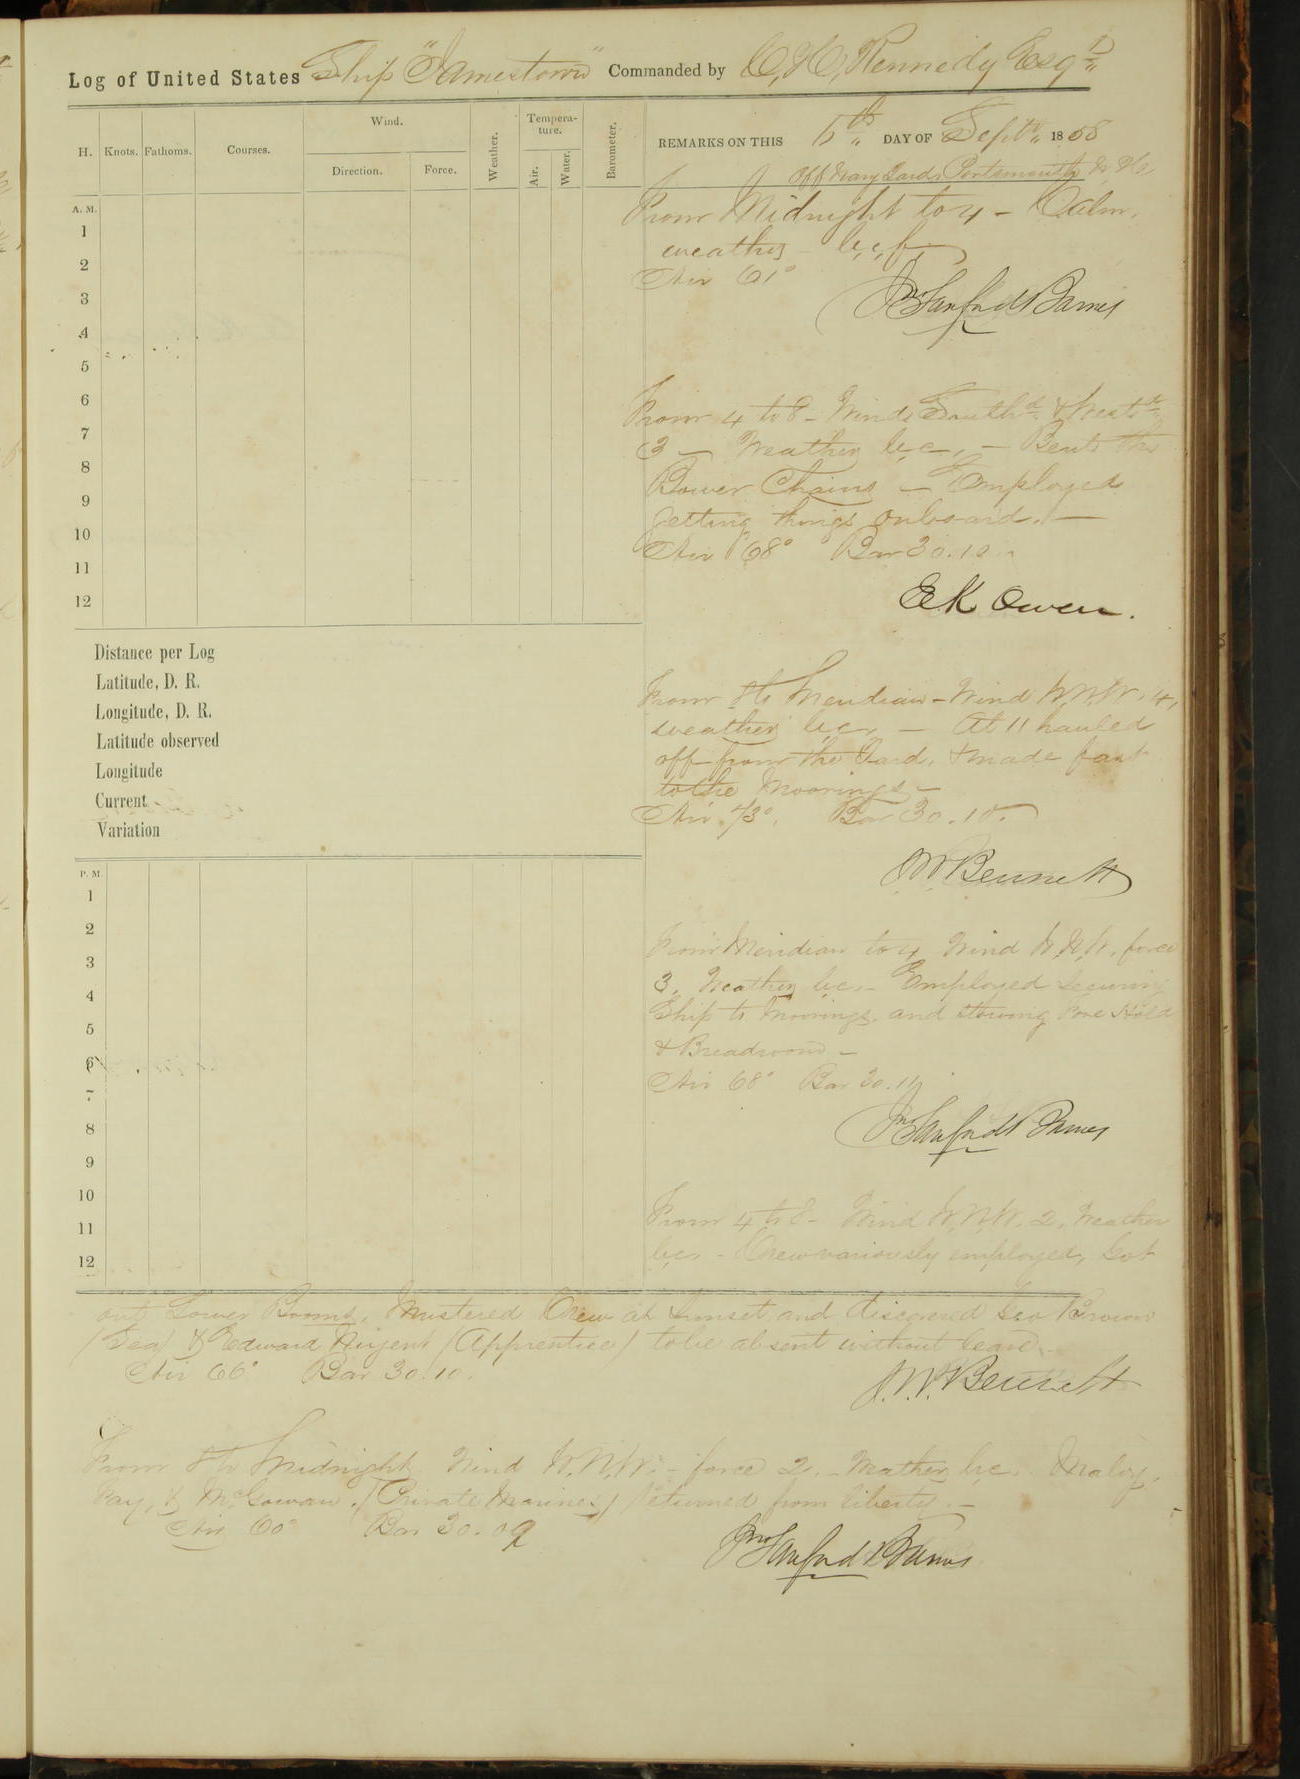 Log of United States Ship "Jamestown" Commanded by C, H, Kennedy Esqr
H. Knots. Fathoms. Courses. Wind. Direction. Force. Weather. Tempera-ture. Air. Water. Barometer.
REMARKS ON THIS 6th DAY OF Septr 1858
Off Navy Yard, Portsmouth N. Ha
A. M.
1
2
3
4
5
6
7
8
9
10
11
12
From Midnight to 4 - Calm,
weather b,c,f,
Air 61°
Jno Sanford Barnes
From 4 to 8 - Winds Southd & Westd
3 - Weather b,c, - Bent the
Bower Chains - Employed
getting things onboard. -
Air 68° Bar 30.10
E K Owen.
Distance per Log
Latitude, D. R.
Longitude, D. R.
Latitude observed
Longitude
Current
Variation
From 8 to Meridian - Wind W.N.W. 4,
weather b,c, - At 11 hauled
off from the Yard, & made fast
to the Moorings -
Air 73°. Bar 30.10.
J.W. Bennett
P. M.
1
2
3
4
5
6
7
8
9
10
11
12
From Meridian to 4 Wind W.N.W. force
3. Weather b,c, - Employed securing
Ship to Moorings and stowing Fore Hold
& Breadroom -
Air 68° Bar 30.11
Jno Sanford Barnes
From 4 to 8 - Wind W.N.W. 2, Weather
b,c, - Crew variously employed, Got
out Lower Booms, Mustered Crew at Sunset and discovered Geo Brown
(Sea) & Edward Nugent (Apprentice) to be absent without leave.
Air 66° Bar 30.10.
J.W. Bennett
From 8 to Midnight Wind W.N.W. - force 2. - Weather b,c.
Fay, & McGowan (Private Marines) returned from liberty. -
Air 60° Bar 30.09
Jno Sanford Barnes